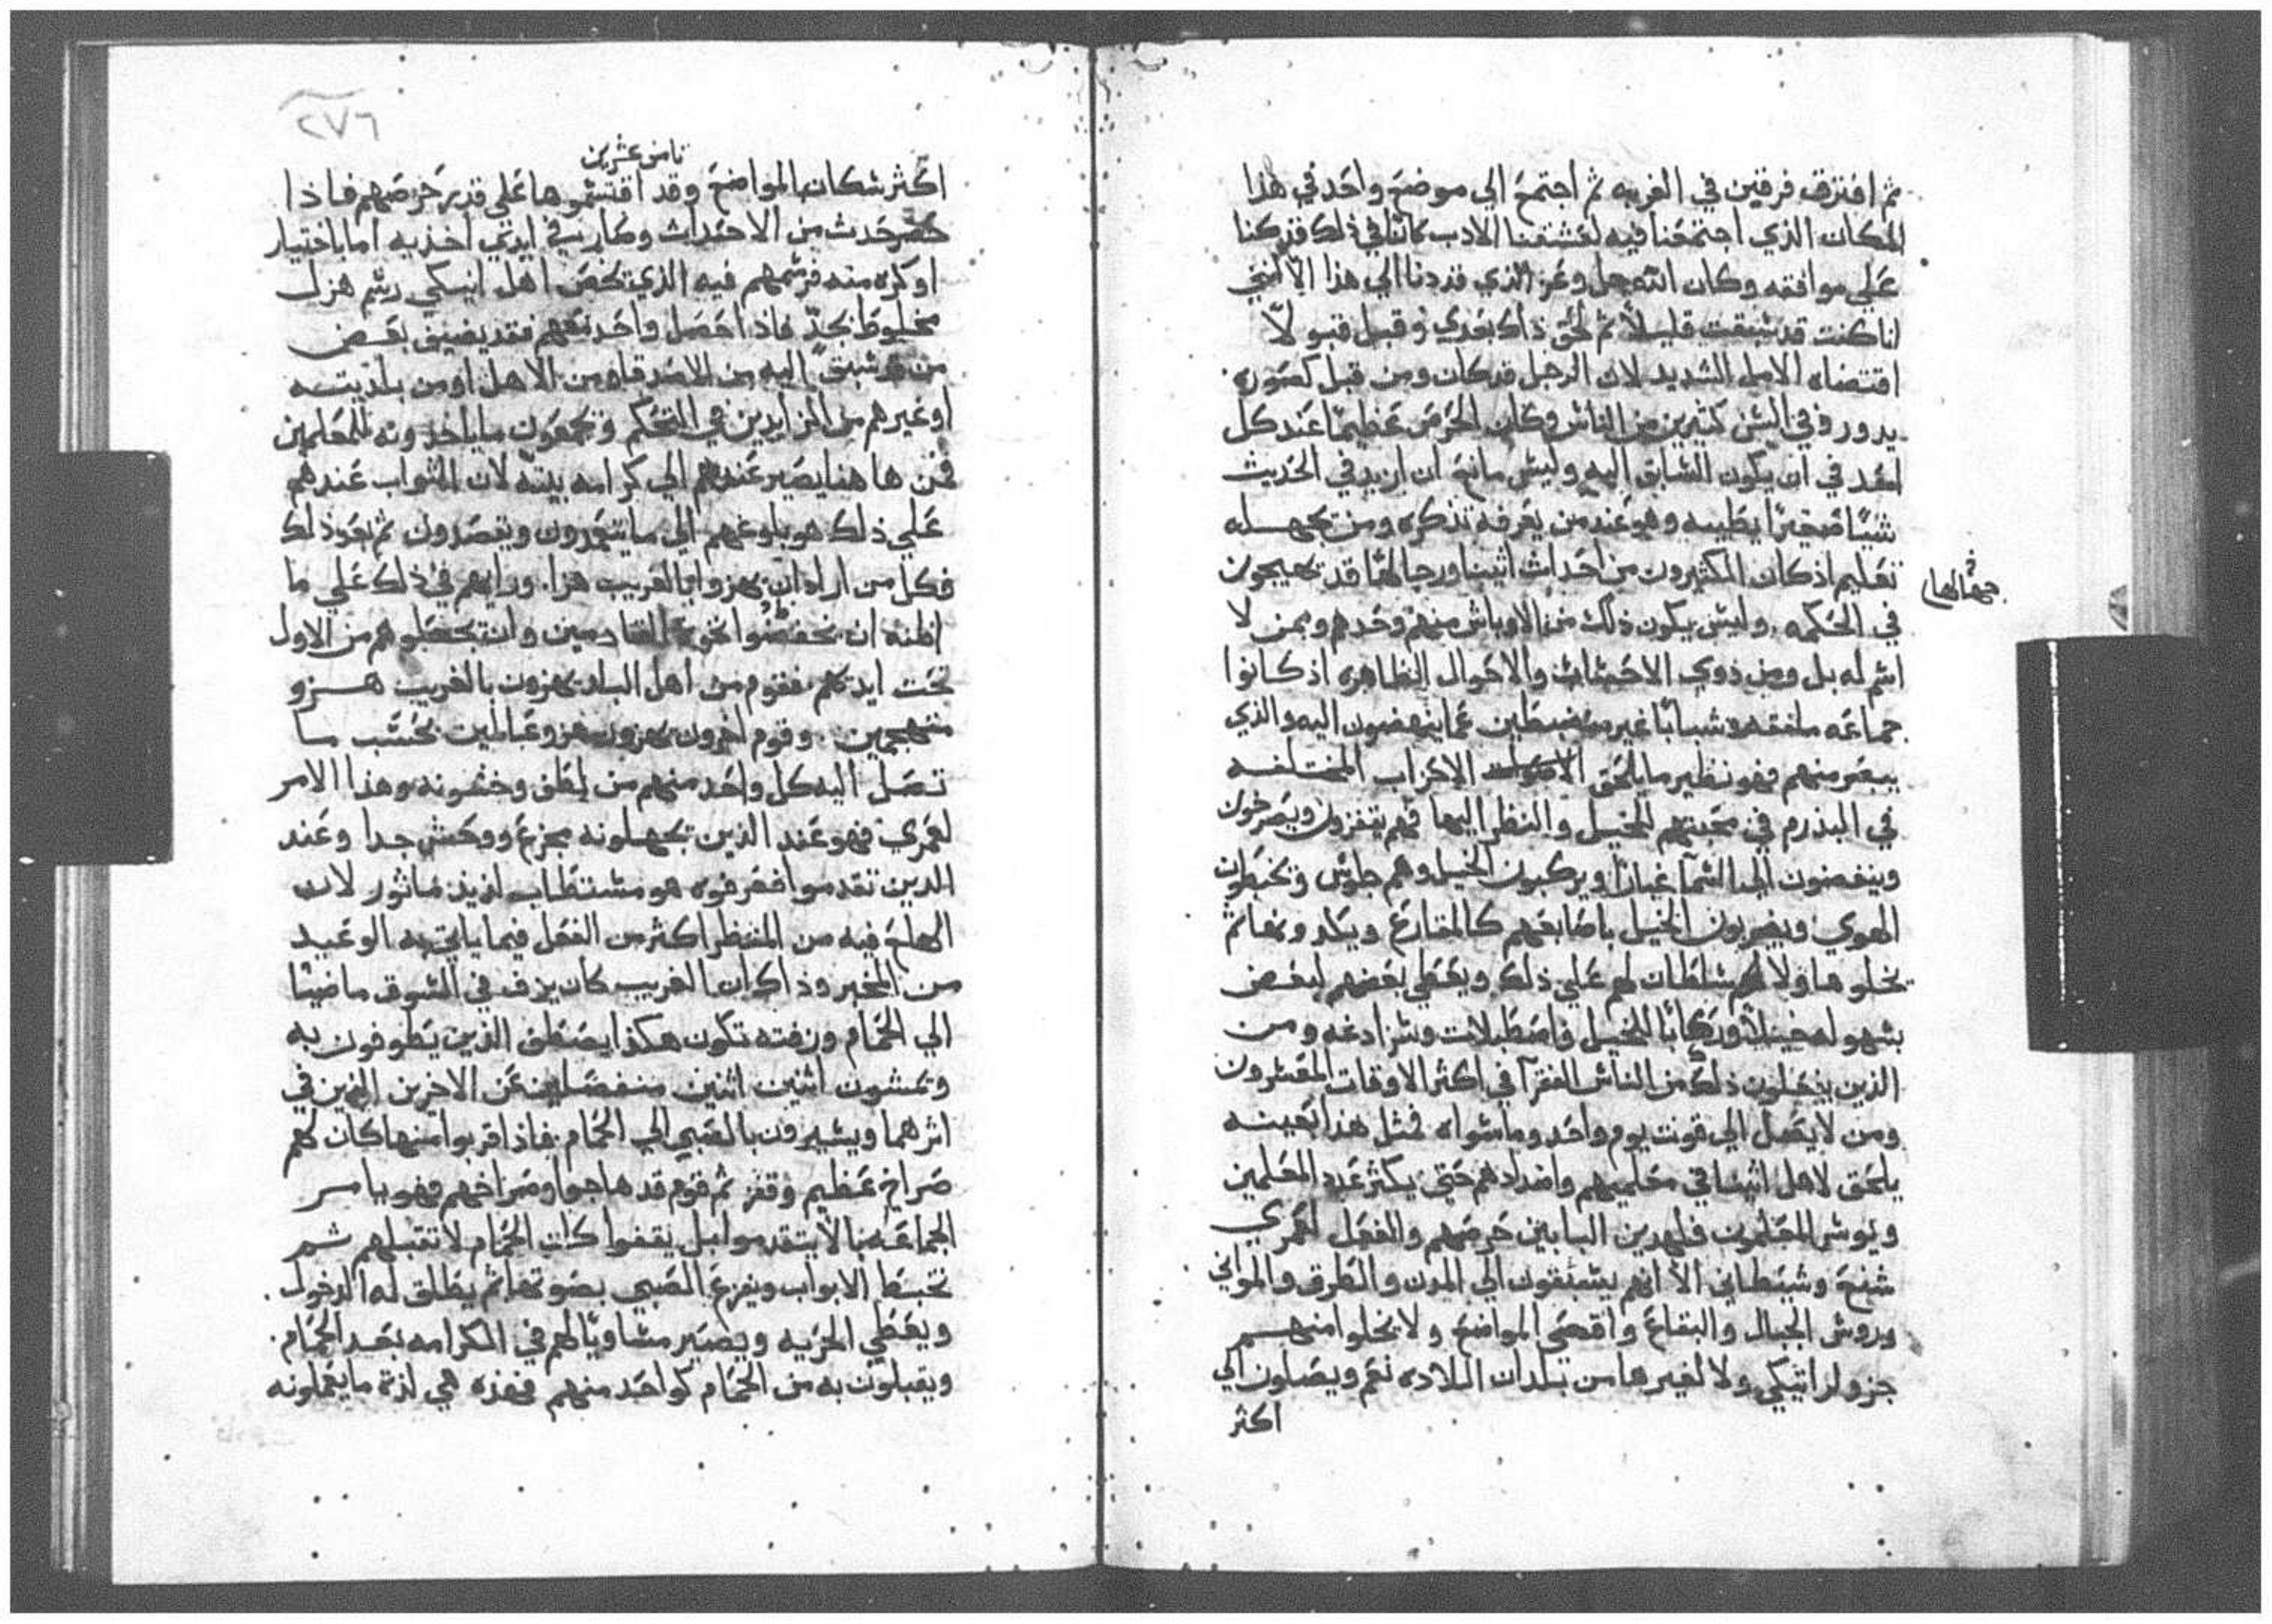 ثم افترق فرقين في الغربه ثم اجتمع الي موضع واحد في هذا
المكان الذي اجتمعنا فيه لعشقنا الادب كاننا في ذلك قد كنا
علي موافقه وكان الله جل وعز الذي قد دنا الي هذا الا انني
انا كنت قد سبقت قليلاً ثم لحق ذاك بعدي وقبل قبولاً
اقتضاه الامل الشديد لان الرجل قد كان ومن قبل حضوره
يدور في السن كثيرين من الناس وكان الحرص عظيمًا عند كل
احد في ان يكون السابق اليه وليس مانع ان ازيد في الحديث
شيًا صغيرًا يطيبه وهو عند من يعرفه تذكره ومن يجهله
تعليم اذ كان المكثرون من احداث اثينا ورجالها قد يهيجون
في الحكمه. وليس يكون ذلك من الاوباش منهم وحدهم وممن لا
اسم له بل ومن ذوي الاحساب والاحوال الظاهره اذ كانوا
جماعه ملتفه وشبابًا غير منضبطين عما ينهضون اليه والذي
يبصر منهم فهو نظير ما يلحق الاحزاب المختلفه
في البذرم في محبتهم للخيل والنظر اليها فهم يقفزون ويصرخون
وينفضون الي السما غبارًا ويركبون الخيل وهم جلوس ويخبطون
الهوي ويضربون الخيل باصابعهم كالمقارع ويكدونها ثم
يحلوها ولا لهم سلطان لهم علي ذلك ويعطي بعضهم لبعض
بسهوله خيلاً وركابًا للخيل واصطبلات وشرادغه ومن
الذين يفعلون ذلك من الناس الفقرا في اكثر الاوقات المقترون
ومن لا يصل الي قوت يوم واحد وما سواه فمثل هذا بعينه
يلحق لاهل اثينا في معلميهم واضدادهم حتي يكثر عدد المعلمين
ويوسر المعلمون فلهدين البابين حرصهم والفعل لعمري
شنع وشيطاني الا انهم يستبقون الي المدن والطرق والمواني
وروس الجبال والبقاع واقصي المواضع ولا يخلوا منهم
جزو لاتيكي ولا لغيرها من بلدان البلاده نعم ويصلون الي
اكثر
جهالها
٢٧٦
ثامن عشرين
اكثر سكان المواضع وقد اقتسموها علي قدر حرصهم فاذا
حضر حدث من الاحداث وصار في ايدي اخذيه اما باختيار
او كره منه فرسمهم فيه الذي يخص اهل اتيكي رسم هزل
مخلوط بجدّ فاذا حصل واحد معهم فقد يضيق بعض
من سبق اليه من الاصدقا ومن الاهل او من بلديته
او غيرهم من المزايدين في التحكم ويجمعون ما ياخذونه للمعلمين
فمن هاهنا يصير عندهم الي كرامه بيته لان الثواب عندهم
علي ذلك هو بلوغهم الي ما يتعمدون ويقصدون ثم بعد ذلك
فكل من اراد ان يهزوا بالغريب هزا. ورايهم في ذلك علي ما
اظنه ان يخفضوا نخوة القادمين وان يجعلوهم من الاول
تحت ايديهم. فقوم من اهل البلد يهزون بالغريب هزو
متهجمين. وقوم اخرون يهزون هزو عالمين بحسب ما
تصل اليه كل واحد منهم من لطف وخشونه وهذا الامر
لعمري فهو عند الذين يجهلونه مجزع ووحش جدا وعند
الذين تقدموا فعرفوه هو مستطاب لذيذ ماثور لان
الهلع فيه من المنتظر اكثر من الفعل فيما ياتي به الوعيد
من المخبر وذاك ان الغريب كان يزف في السوق ماضيًا
الي الحمام وزفته تكون هكذا يصطف الذين يطوفون به
ويمشون اثنين اثنين منفصلين عن الاخرين الذين في
اثرهما ويسيرون بالصبي الي الحمام فاذا قربوا منها كان لهم
صراخ عظيم وقفز ثم قوم قد هاجوا وصراخهم فهو يامر
الجماعه بالا يتقدموا بل يقفوا كان الحمام لا تقبلهم ثم
تخبط الابواب ويفزع الصبي بصوتها ثم يطلق له الدخول.
ويعطي الحريه ويصير مساويًا لهم في الكرامه بعد الحمام.
ويقبلون به من الحمام كواحد منهم فهذه هي لذة ما يفعلونه